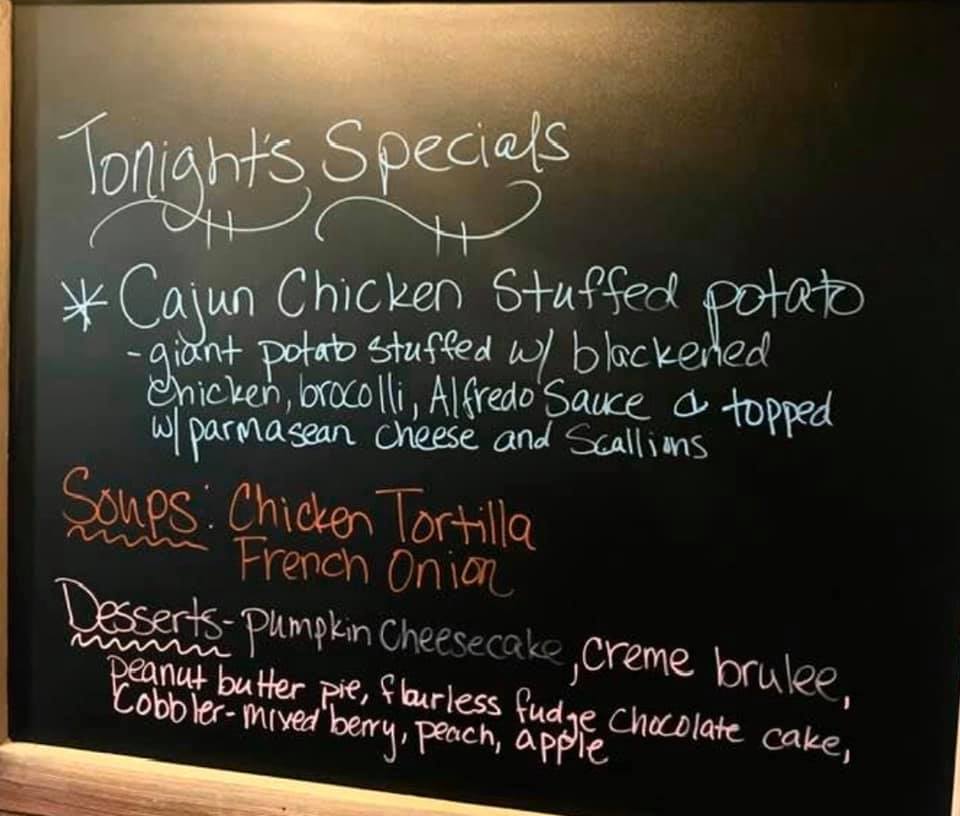 Tonight's Specials
* Cajun Chicken Stuffed potato
- giant potato stuffed w/ blackened
chicken, brocolli, Alfredo Sauce & topped
w/ parmasean cheese and Scallions
Soups: Chicken Tortilla
French Onion
Desserts - Pumpkin Cheesecake, Creme brulee,
peanut butter pie, flourless fudge chocolate cake,
Cobbler - mixed berry, peach, apple